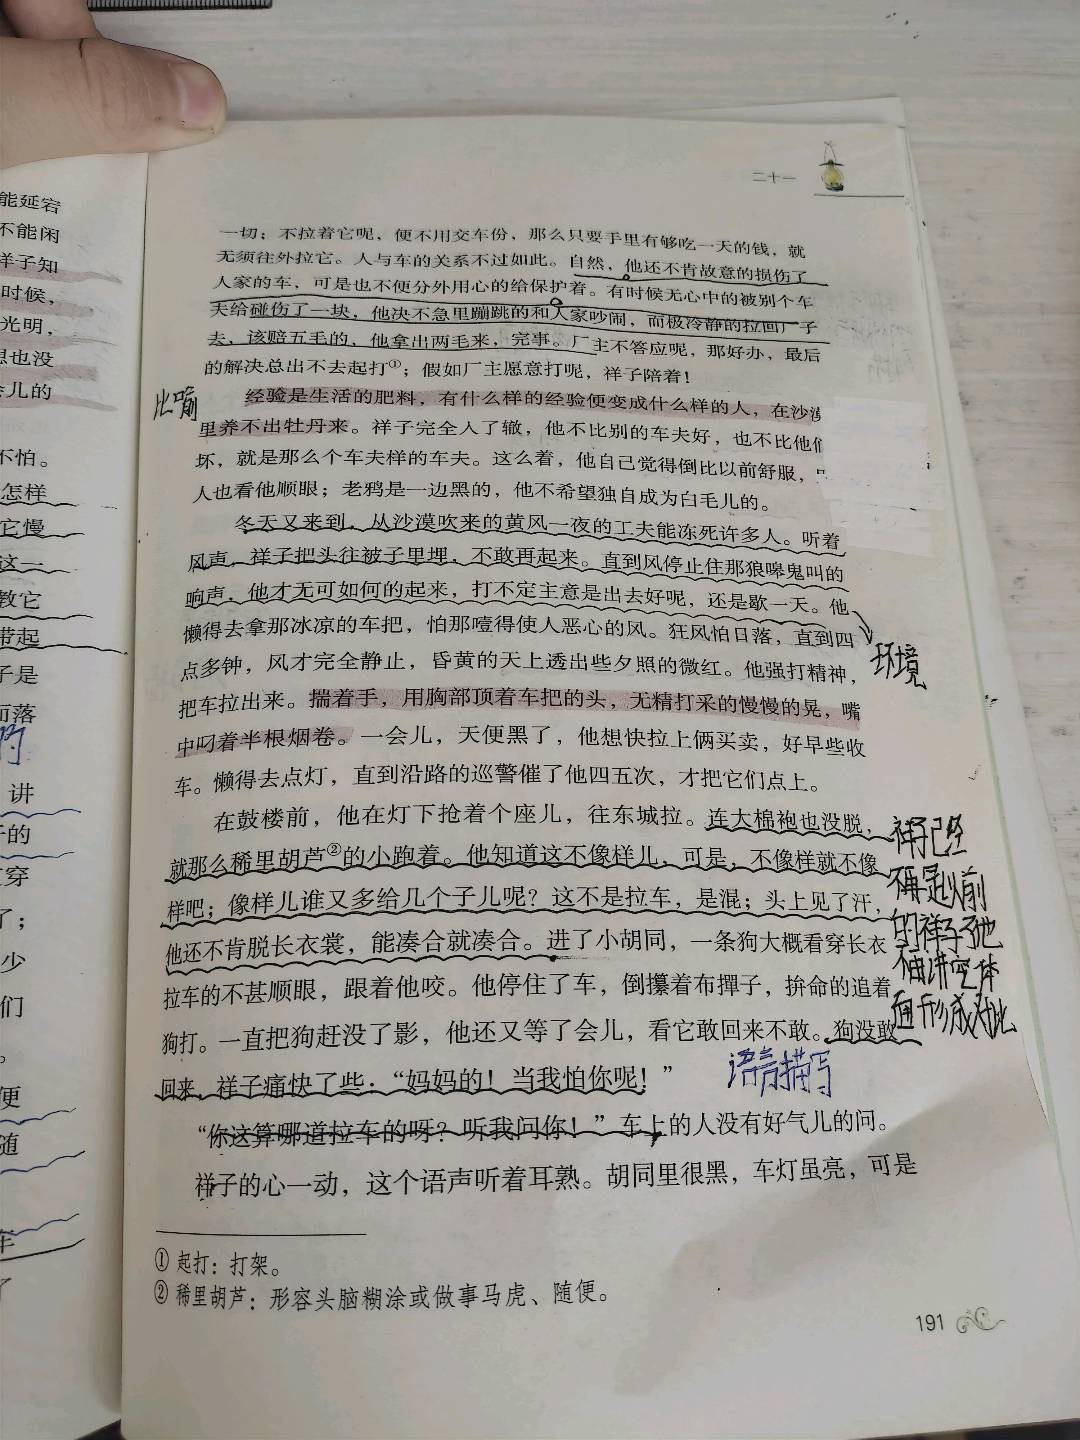 能延宕
不能闲
祥子知
时候，
光明，
想也没
会儿的
不怕。
怎样
它慢
这一
教它
带起
子是
而落
讲
的
穿
了；
少
们
。
便
随
二十一
一切；不拉着它呢，便不用交车份，那么只要手里有够吃一天的钱，就
无须往外拉它。人与车的关系不过如此。自然，他还不肯故意的损伤了
人家的车，可是也不便分外用心的给保护着。有时候无心中的被别个车
夫给碰伤了一块，他决不急里蹦跳的和人家吵闹，而极冷静的拉回厂子
去，该赔五毛的，他拿出两毛来，完事。厂主不答应呢，那好办，最后
的解决总出不去起打①；假如厂主愿意打呢，祥子陪着！
比喻
经验是生活的肥料，有什么样的经验便变成什么样的人，在沙漠
里养不出牡丹来。祥子完全入了辙，他不比别的车夫好，也不比他们
坏，就是那么个车夫样的车夫。这么着，他自己觉得倒比以前舒服，
人也看他顺眼；老鸦是一边黑的，他不希望独自成为白毛儿的。
冬天又来到，从沙漠吹来的黄风一夜的工夫能冻死许多人。听着
风声，祥子把头往被子里埋，不敢再起来。直到风停止住那狼嗥鬼叫的
响声，他才无可如何的起来，打不定主意是出去好呢，还是歇一天。他
懒得去拿那冰凉的车把，怕那噎得使人恶心的风。狂风怕日落，直到四
点多钟，风才完全静止，昏黄的天上透出些夕照的微红。他强打精神，
环境
把车拉出来。揣着手，用胸部顶着车把的头，无精打采的慢慢的晃，嘴
中叼着半根烟卷。一会儿，天便黑了，他想快拉上俩买卖，好早些收
车。懒得去点灯，直到沿路的巡警催了他四五次，才把它们点上。
在鼓楼前，他在灯下抢着个座儿，往东城拉。连大棉袍也没脱，
就那么稀里胡芦②的小跑着。他知道这不像样儿，可是，不像样就不像
样吧；像样儿谁又多给几个子儿呢？这不是拉车，是混；头上见了汗，
他还不肯脱长衣裳，能凑合就凑合。进了小胡同，一条狗大概看穿长衣
拉车的不甚顺眼，跟着他咬。他停住了车，倒攥着布掸子，拚命的追着
狗打。一直把狗赶没了影，他还又等了会儿，看它敢回来不敢。狗没敢
回来，祥子痛快了些：“妈妈的！当我怕你呢！”
祥子已经
不再是以前
的祥子了他
不由讲究体
面形成对比
语言描写
“你这算哪道拉车的呀？听我问你！”车上的人没有好气儿的问。
祥子的心一动，这个语声听着耳熟。胡同里很黑，车灯虽亮，可是
① 起打：打架。
② 稀里胡芦：形容头脑糊涂或做事马虎、随便。
191